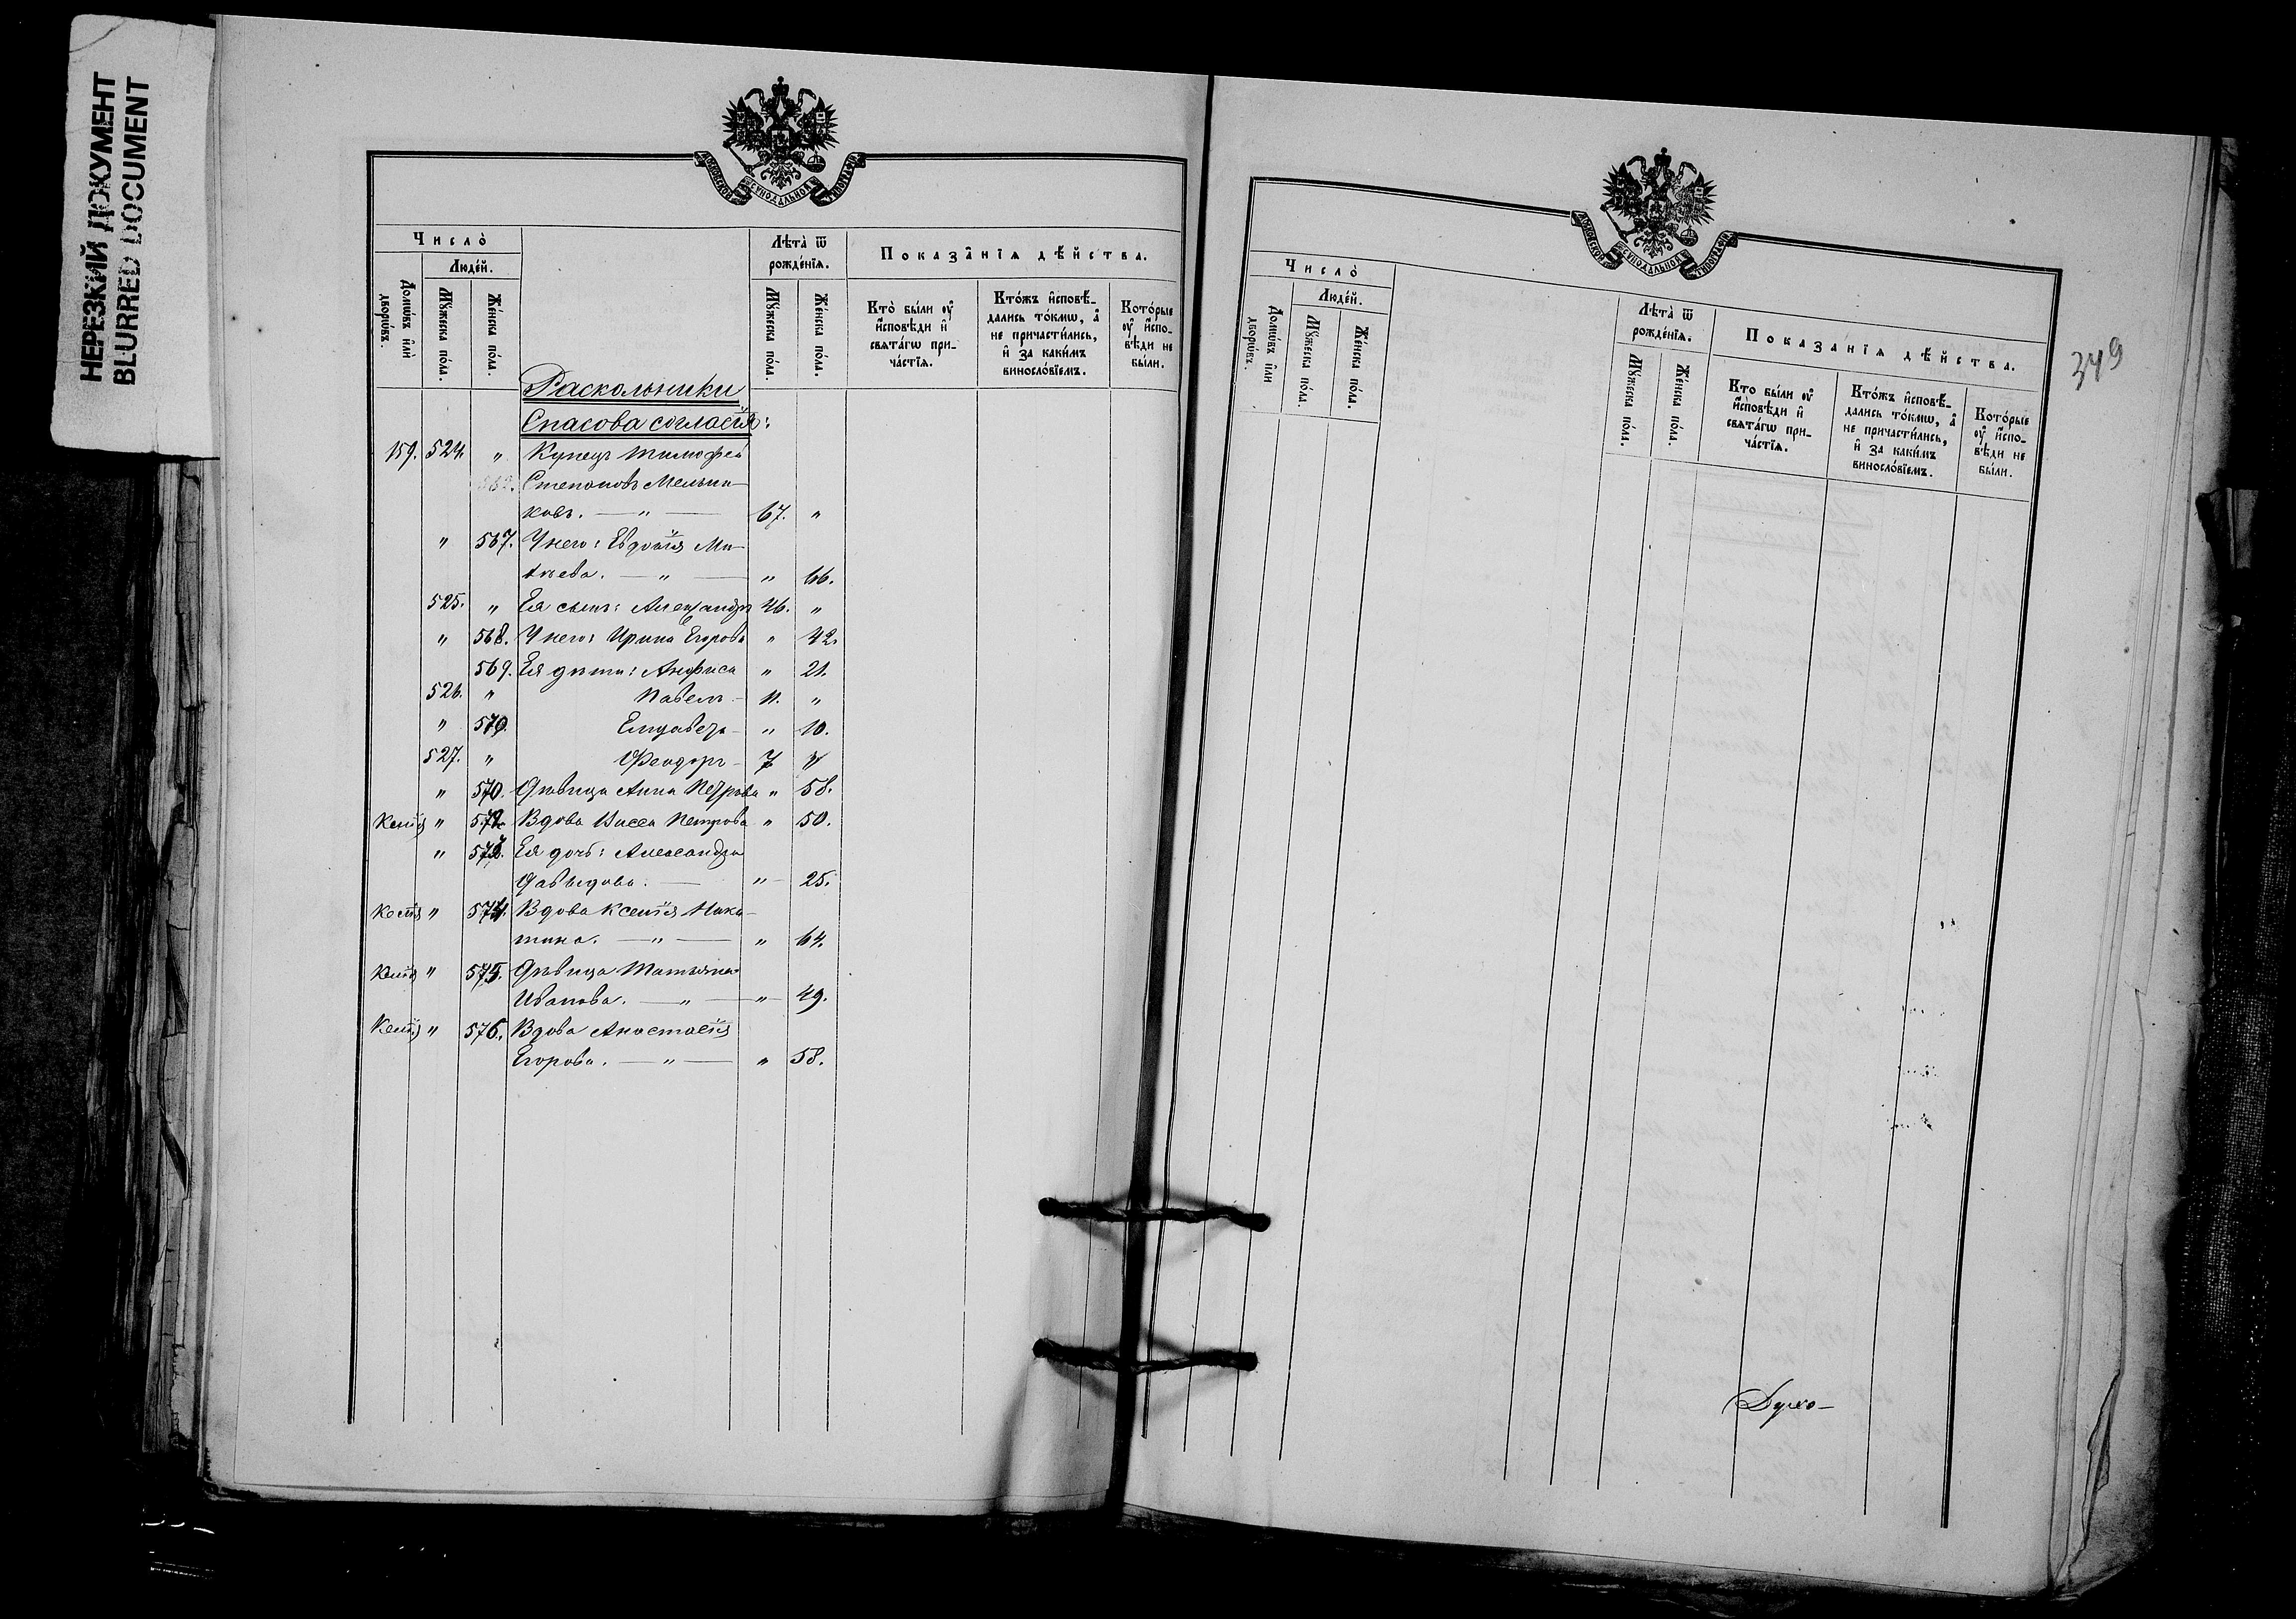 НЕРЕЗКИЙ ДОКУМЕНТ
BLURRED DOCUMENT
Число̀
Люде́й.
Домѡ́въ и҆лѝ дворѡ́въ.
Мꙋ́жеска по́ла.
Же́нска по́ла.
Лѣ́та ѿ рожде́нїѧ.
Мꙋ́жеска по́ла.
Же́нска по́ла.
Показа̑нїѧ дѣ́йства.
Кто̀ бы́ли ᲂу҆ и҆́сповѣди и҆ свѧта́гѡ прича́стїѧ.
Кто́жъ и҆сповѣ́дались то́кмѡ, а҆ не причасти́лись, и҆ за каки́мъ виносло́вїемъ.
Кото́рые ᲂу҆ и҆́сповѣди не бы́ли.
Раскольники
Спасова согласія:
159. 524. " Купецъ Тимофей
Степановъ Мельни-
ковъ. — " — 67. "
" 567. У него: Евдокія Ми-
хѣева. — " — " 66.
525. " Ея сынъ: Александръ 46. "
" 568. У него: Ирина Егорова " 42.
569. Ея дѣти: Анфиса " 21.
526. " Павелъ - 11. "
" 570. Елизавета - " 10.
527. " Ѳеодоръ - 7 "
" 570. Дѣвица Анна Петрова " 58.
Келія " 572. Вдова Васса Петрова " 50.
" 573. Ея дочь: Александра
Давыдова. — " 25.
Келія " 574. Вдова Ксенія Ники-
тина. — " — " 64.
Келія " 575. Дѣвица Татьяна
Иванова. — " — " 49.
Келія " 576. Вдова Анастасія
Егорова. — " — " 58.
349
Число̀
Люде́й.
Домѡ́въ и҆лѝ дворѡ́въ.
Мꙋ́жеска по́ла.
Же́нска по́ла.
Лѣ́та ѿ рожде́нїѧ.
Мꙋ́жеска по́ла.
Же́нска по́ла.
Показа̑нїѧ дѣ́йства.
Кто̀ бы́ли ᲂу҆ и҆́сповѣди и҆ свѧта́гѡ прича́стїѧ.
Кто́жъ и҆сповѣ́дались то́кмѡ, а҆ не причасти́лись, и҆ за каки́мъ виносло́вїемъ.
Кото́рые ᲂу҆ и҆́сповѣди не бы́ли.
Духо-